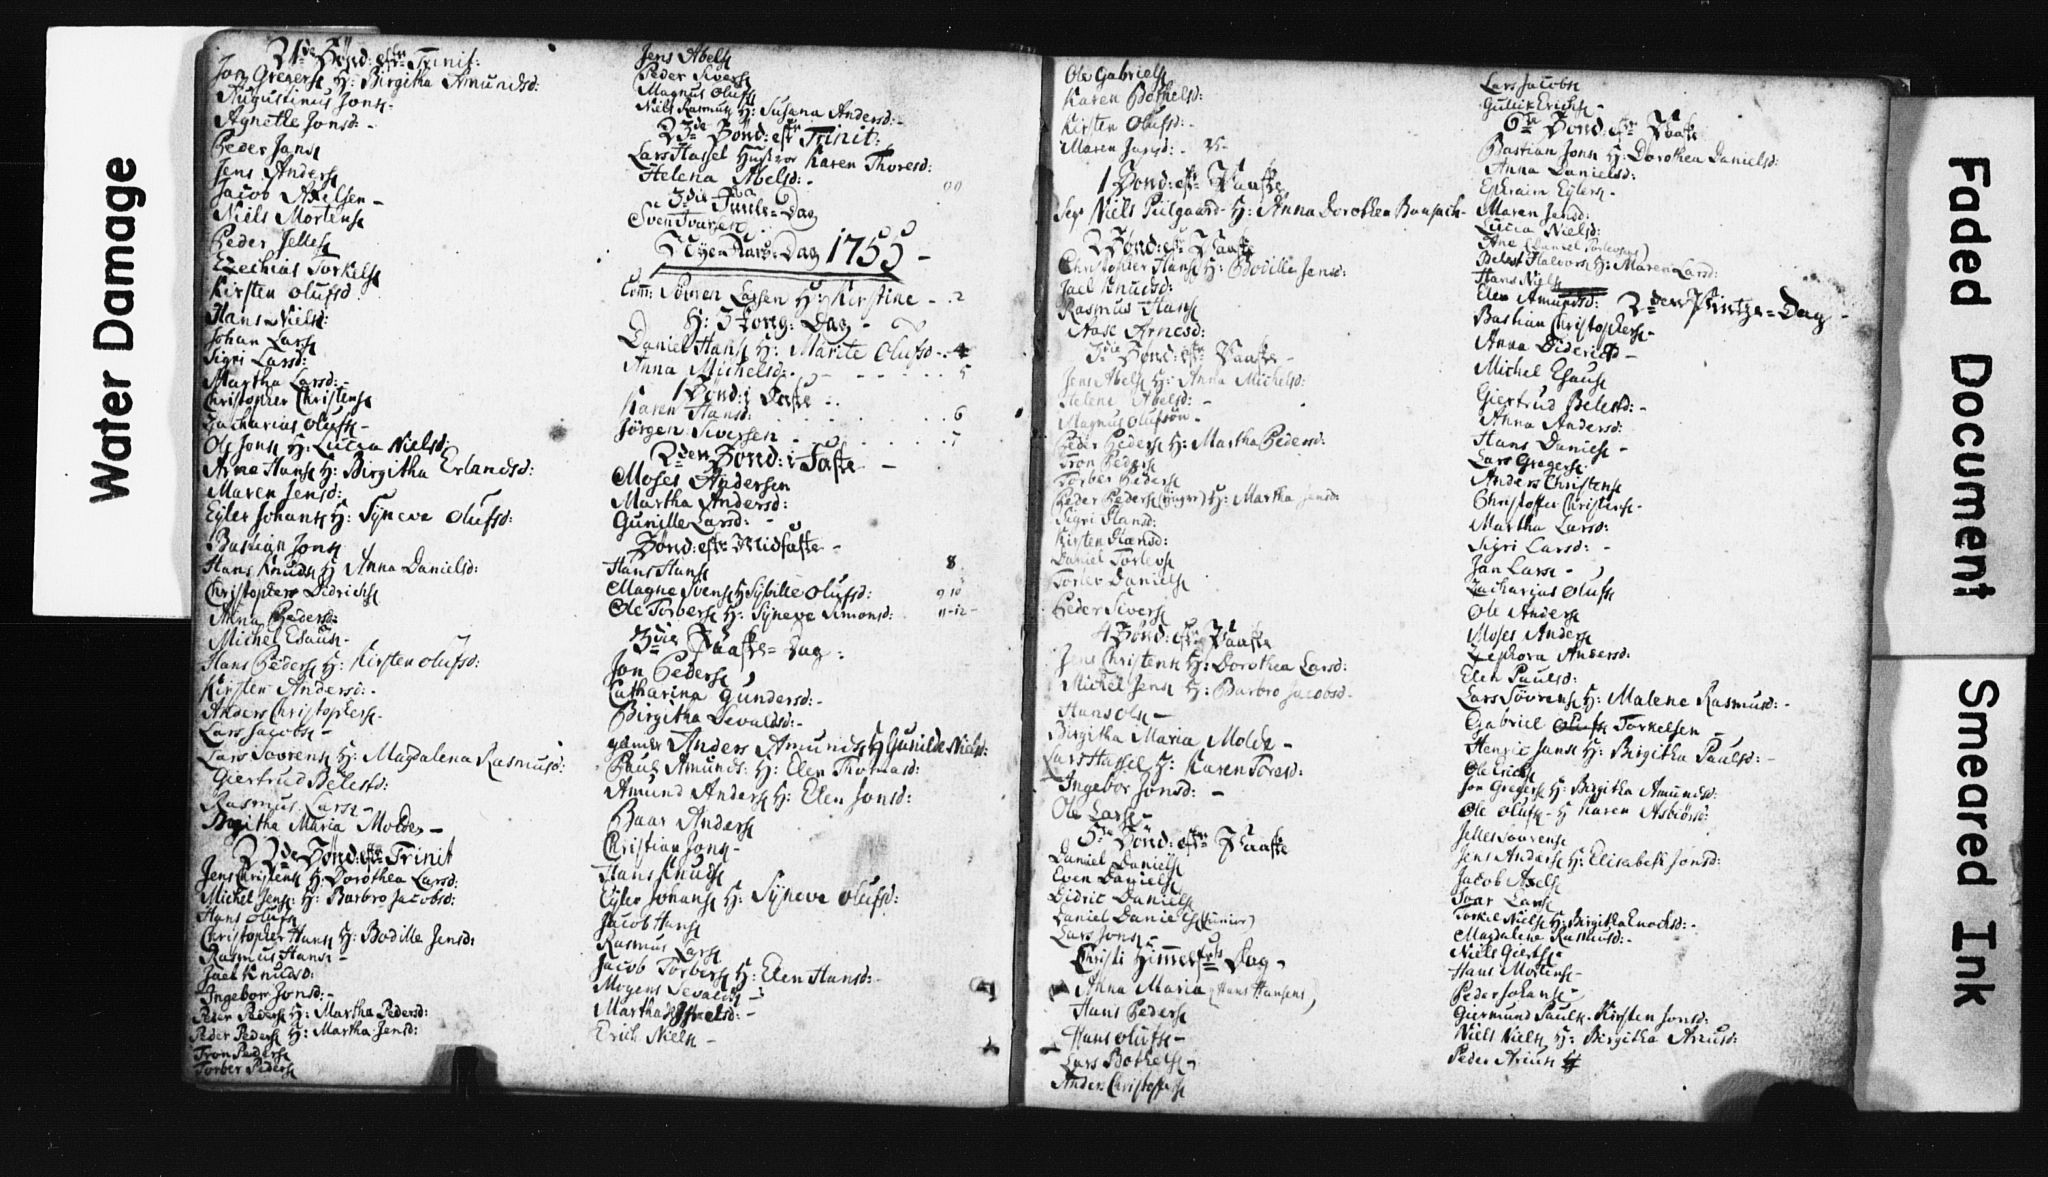 Water Damage
21de Sönd: eftr Trinit:
Jon Gregers H: Birgitha Amundsd:
Augustinus Jons -
Agnethe Jonsd: -
Peder Jans
Jens Anders
Jacob Axelsen -
Niels Mortens
Peder Jelles
Ezechias Torkels
Kirsten Olufsd
Hans Nielsd:
Johan Lars
Sigri Larsd:
Martha Larsd: -
Christopher Christens
Zacharias Olufs -
Ole Jons H: Lucia Nielsd:
Arne Hans H: Birgitha Erlandsd:
Maren Jensd:
Eyler Johans H: Syneve Olufsd:
Bastian Jons
Hans Knuds H Anna Danielsd:
Christopher Didrichs
Anna Pedersd:
Michel Esaus -
Hans Peders H: Kirsten Olufsd:
Kirsten Andersd: -
Anders Christophers -
Lars Jacobs -
Lars Sovrens H: Magdalena Rasmusd:
Giertrud Belestd:
Rasmus Lars -
Birgitha Maria Molde -
22de Sönd: eftr Trinit
Jens Christens H: Dorothea Larsd:
Michel Jens H: Barbro Jacobsd:
Hans Olufs
Christopher Hans H: Bodille Jensd:
Rasmus Hans -
Jael Knudsd:
Ingebor Jonsd: -
Peder Peders H: Martha Pedersd:
Peder Peders H: Martha Jensd:
Tron Peders
Torber Peders
Jens Abels
Peder Sivers
Magnus Olufs
Niels Rasmus H: Susana Andersd: -
23de Sönd: eftr Trinit:
Lars Hassel Hustroe Karen Thoresd:
Helena Abelsd: -
3die Juule-Dag
Sven Ivarsen
Nye Aars-Dag 1755 -
Com: Sömen Lassen H: Kirstine - . 2
H: 3 Kong: Dag -
Daniel Hans H: Marite Olufsd - . 4
Anna Michelsd - - - - - - 5
1 Sönd: i Faste -
Karen Hansd: . . . . . 6
Jörgen Siversen . . . . . 7
2den Sönd: i Faste -
Moses Andersen
Martha Andersd:
Gunille Larsd: -
Sönd: eftr Midfaste -
Hans Hans 8
Magne Svens H Sybille Olufsd: 9 10
Ole Torbers H: Syneve Simonsd: 11-12 -
3die Paaske-Dag:
Jon Peders
Catharina Gundersd: -
Birgitha Sevaldsd: -
Anders Amunds H Gunilde Nielsd:
Paul Amunds: H: Elen Thomasd:
Amund Anders H: Elen Jonsd:
Baar Anders
Christian Jons -
Hans Knuds
Eyler Johans H: Syneve Olufsd:
Jacob Hans
Rasmus Lars
Jacob Torbers H: Elen Hansd: -
Mogens Sevalds -
Martha Israelsd: -
Erich Niels -
Ole Gabriels
Karen Bothelsd:
Kirsten Olufsd: -
Maren Jansd: 25 -
1 Sönd: eftr Paaske
Segr Niels Peilgaard H: Anna Dorothea Bausach -
2 Sönd: eftr Paaske
Christopher Hans H: Bodille Jensd:
Jael Knudsd:
Rasmus Hans
Aase Arnesd:
3die Sönd: eftr Paaske -
Jens Abels H: Anna Michelsd:
Helene Abelsd: -
Magnus Olufsön -
Peder Peders H: Martha Pedersd:
Tron Peders
Torber Peders
Peder Peders (yngre) H: Martha Jensd:
Sigri Hansd:
Kirsten Hansd:
Daniel Torlevs
Torlev Daniels
Peder Sivers
4 Sönd: eftr Paaske
Jens Christens H: Dorothea Larsd:
Michel Jens H: Barbro Jacobsd.
Hans Ols -
Birgitha Maria Molde -
Lars Hassel H: Karen Toresd:
Ingebor Jonsd: -
Ole Lars -
5te Sönd: eftr Paaske
Daniel Daniels
Even Daniels
Didric Daniels
Daniel Daniels (junior)
Lars Jons -
Christi Himmelfarts Dag -
Anna Maria (Hans Hansens)
Hans Peders
Hans Olufs -
Lars Bothels -
Anders Christophers
Lars Jacobs
Gullik Erichs -
6te Sönd: eftr Paaske
Bastian Jons H: Dorothea Danielsd:
Anna Danielsd:
Ephraim Eylers -
Maren Jensd:
Lucia Nielsd:
Ane (Daniel Torlevsens)
Belest Halvors H: Maren Larsd:
Hans Niels
Elen Amundsd:
2den Pintze-Dag -
Bastian Christophers -
Anna Diderichs -
Michel Esaus
Giertrud Belestd: -
Anna Andersd:
Hans Daniels -
Lars Gregers -
Anders Christens
Christoffer Christens -
Martha Larsd:
Sigri Larsd: -
Jan Lars -
Zacharias Olufs
Ole Anders
Moses Anders
Zephora Andersd:
Elen Paulsd:
Lars Sövrens H: Malene Rasmusd: -
Gabriel Olufs Torkelsen -
Henric Jans H: Birgitha Paulsd: -
Ole Erichs
Jon Gregers H: Birgitha Amundsd:
Ole Olufs - H Karen Asbiörsd:
Jelles Sovrens
Jens Anders H: Elisabeth Jonsd:
Jacob Axels
Ivar Lars
Torkel Niels H: Birgitha Enochsd: -
Magdalene Rasmusd: -
Niels Gierts -
Hans Mortens -
Peder Johans -
Giermund Pauls - Kirsten Jonsd:
Niels Niels H: Birgitha Ariusd:
Peder Arius H
Faded Document
Smeared Ink